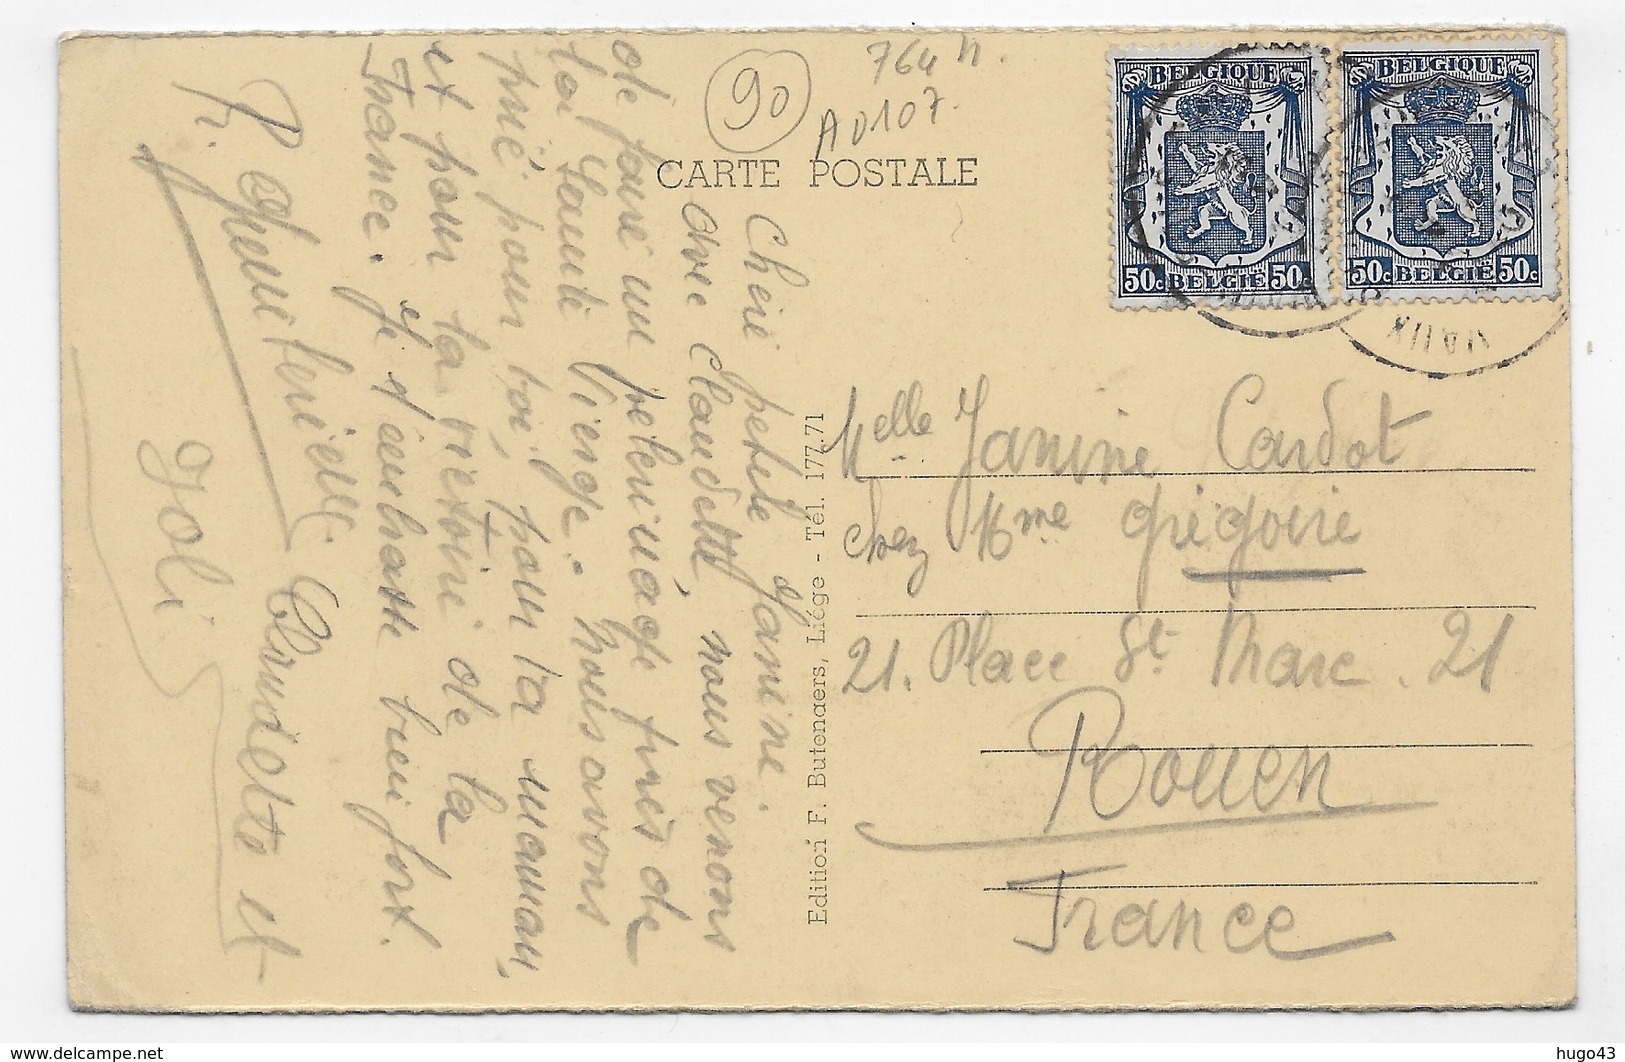 90
764 n.
A0107.
CARTE POSTALE
BELGIQUE
50c BELGIE 50c
BELGIQUE
50c BELGIE 50c
Chère petite Janine.
Avec Claudette, nous venons
de faire un pelerinage près de
la Sainte Vierge. Nous avons
prié pour toi, pour ta maman,
et pour la victoire de la
France. Je t'embrasse bien fort.
Claudette et
Joli
Edition F. Butenaers, Liége - Tél. 177.71
Melle Janine Cardot
chez Mme Grégoire
21. Place St Marc. 21
Rouen
France
hugo43